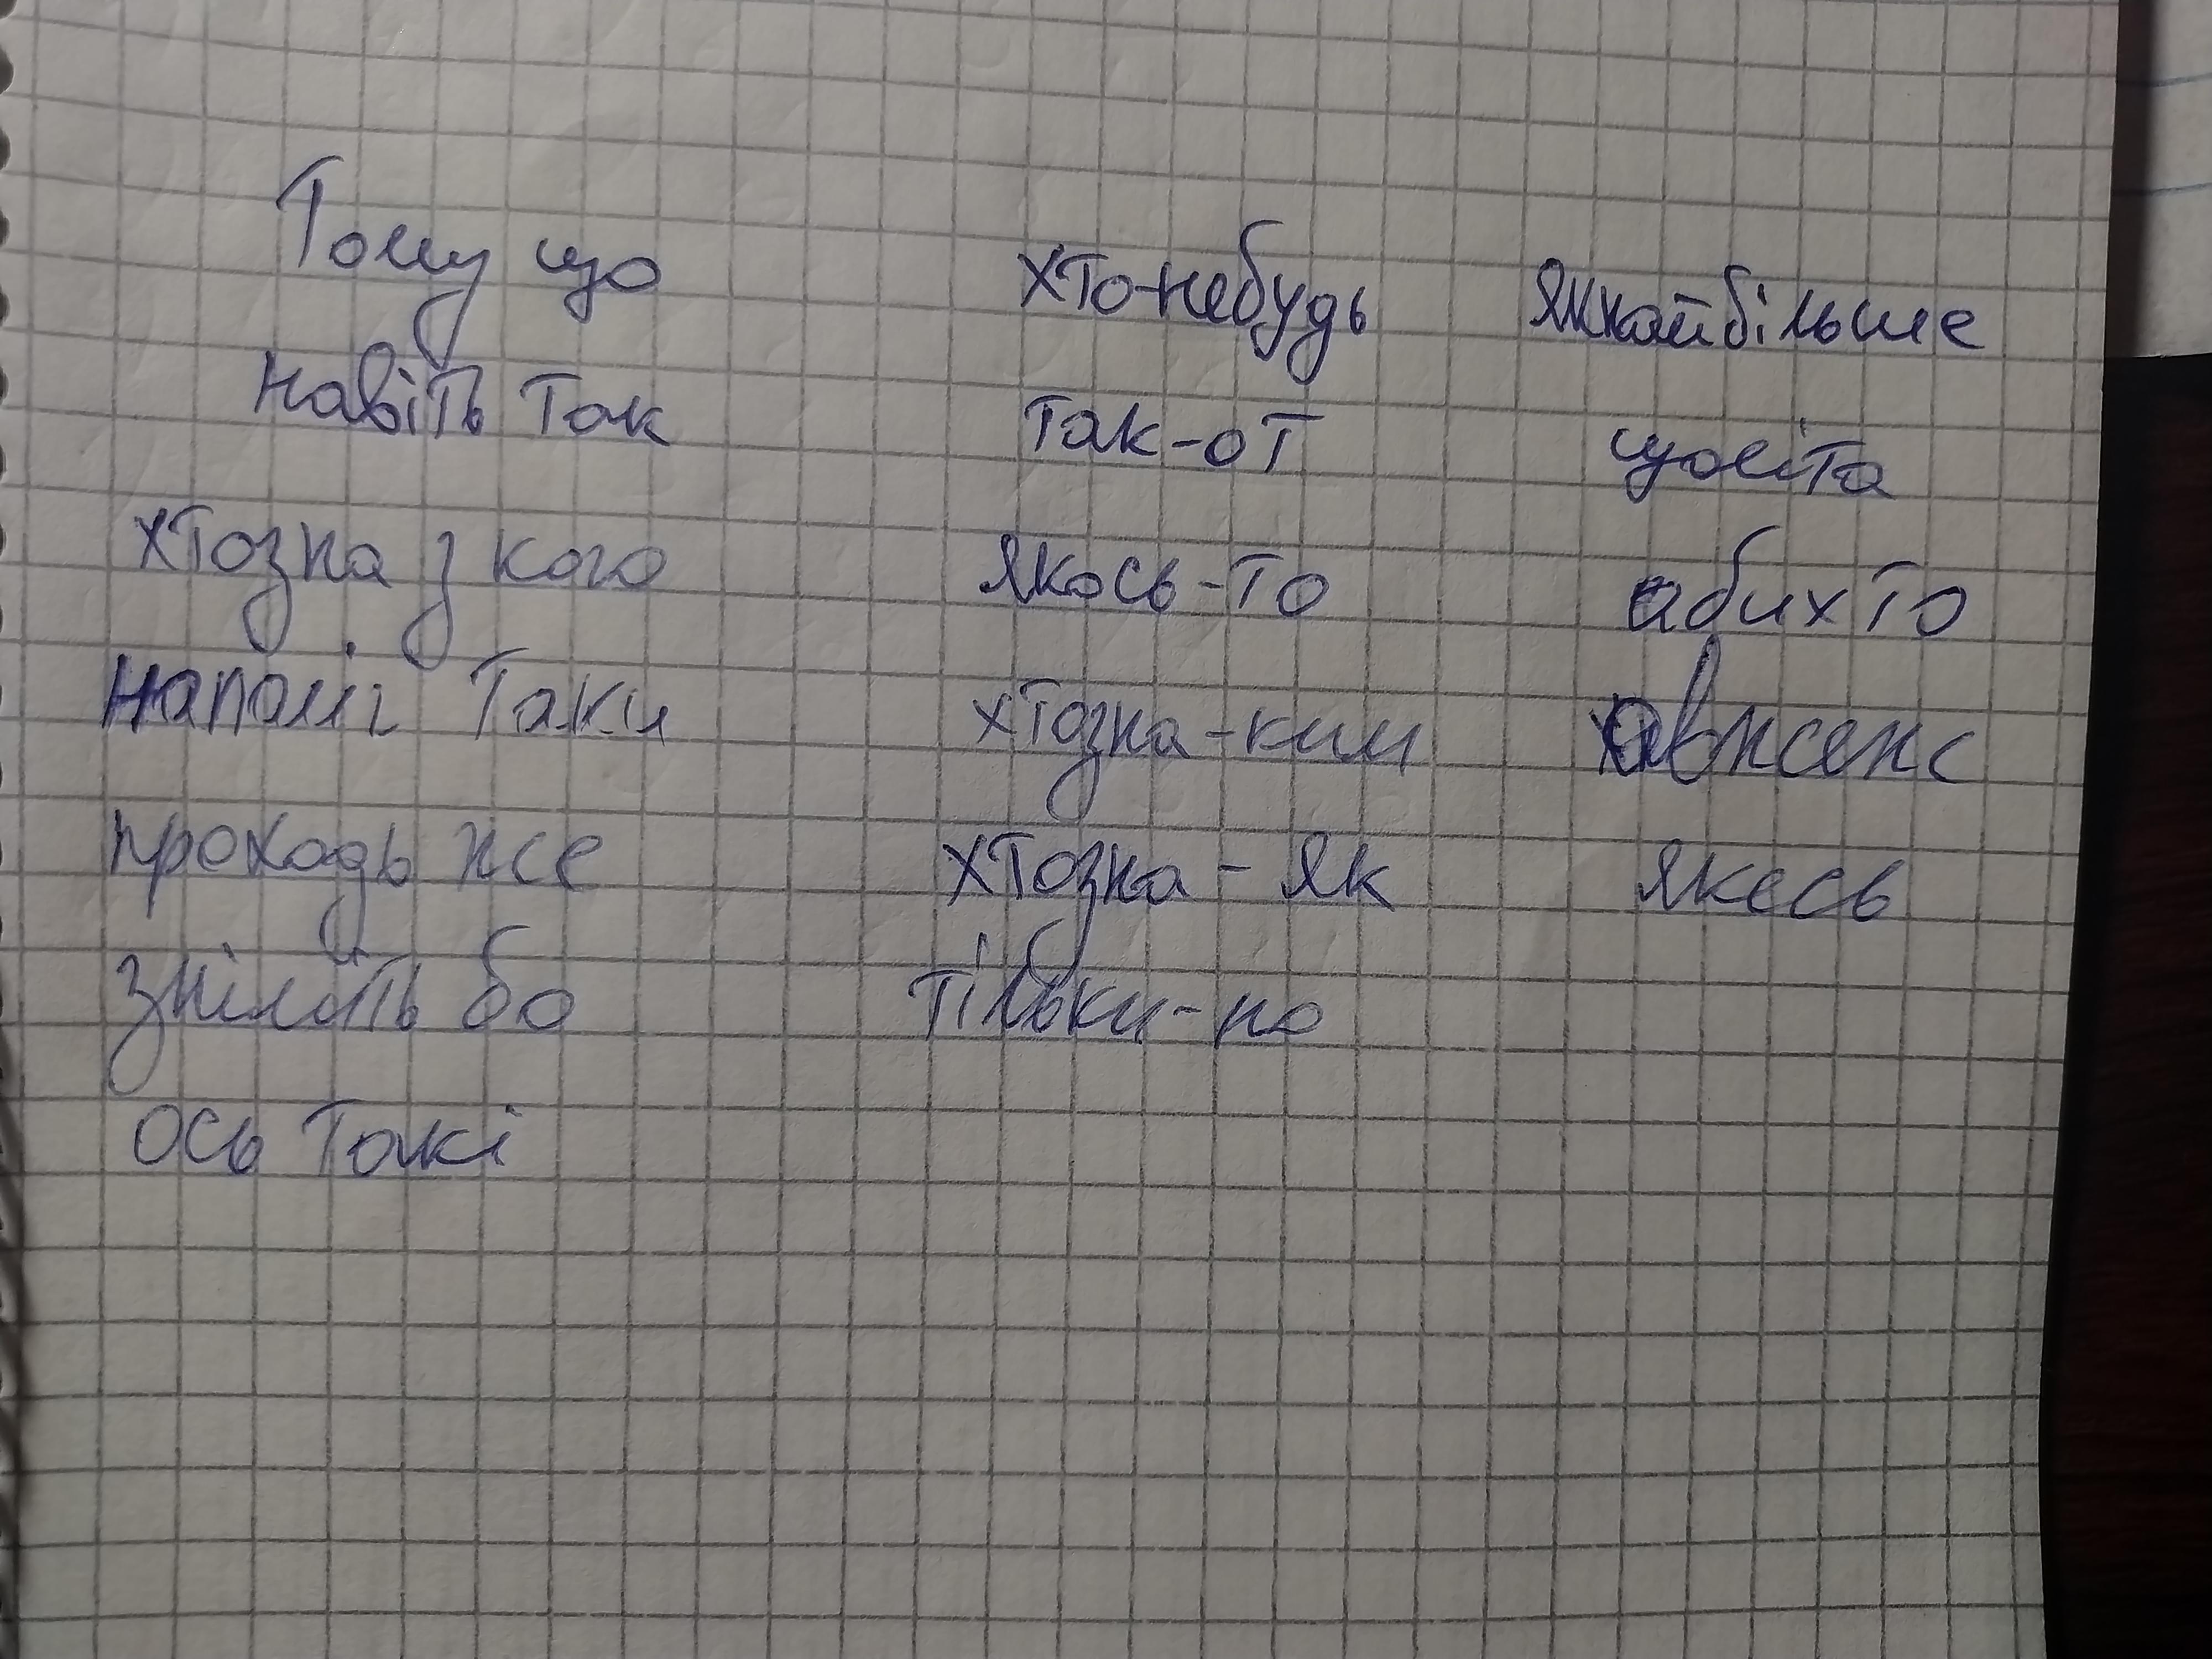 Тому що хто-небудь якнайбільше
навіть так так-от щоліта
хтозна з кого якось-то абихто
наполіг таки хтозна-ким авжеж
проходь же хтозна-як якесь
зніміть бо тільки-но
ось такі